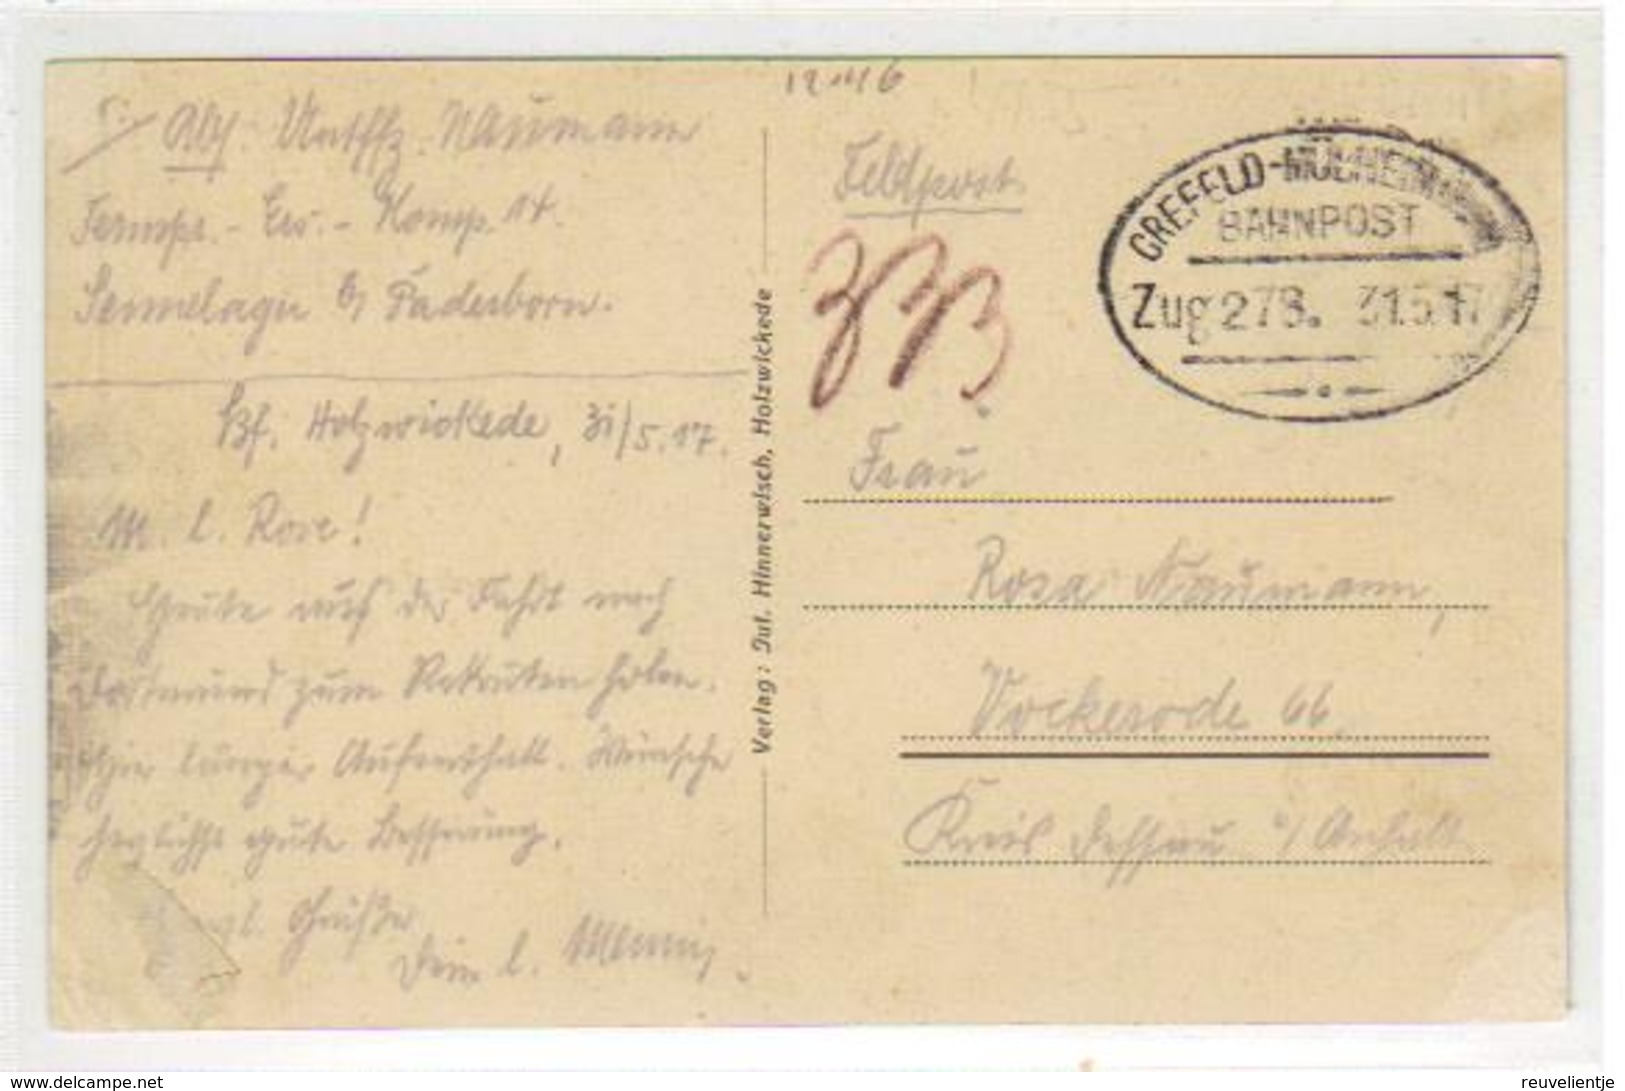 12 M 6
Abs. Untffz. Naumann
Fernspr.-Ers.-Komp. 14.
Sennelager b/ Paderborn.
Bf. Holzwickede, 31/5.17.
M. l. Rose!
Heute auf der Fahrt nach
Dortmund zum Rekruten holen.
Hier langer Aufenthalt. Wünsche
herzlichst gute Besserung.
Grüße
Dein l.
Verlag: Jul. Hinnerwisch, Holzwickede
Feldpost
CREFELD-MÜLHEIM
BAHNPOST
Zug 278. 31.5.17
Frau
Rosa Naumann,
Vockerode 66.
Kreis Dessau i/ Anhalt
www.delcampe.net
reuvelientje